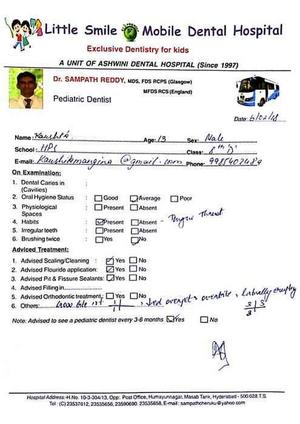 Little Smile Mobile Dental Hospital
Exclusive Dentistry for kids
A UNIT OF ASHWINI DENTAL HOSPITAL (Since 1997)
Dr. SAMPATH REDDY, MDS, FDS RCPS (Glasgow)
MFDS RCS (England)
Pediatric Dentist
Date:
Name: Age: 13 Sex: Male
School: HPS Class: 8th
E-mail: @gmail.com Phone:
On Examination:
1. Dental Caries in (Cavities)
2. Oral Hygiene Status : Good Average Poor
3. Physiological Spaces : Present Absent
4. Habits : Present Absent - Tongue Thrust
5. Irregular teeth : Present Absent
6. Brushing twice : Yes No
Adviced Treatment:
1. Advised Scaling/Cleaning : Yes No
2. Advised Flouride application : Yes No
3. Advised Pit & Fissure Sealants: Yes No
4. Advised Filling in
5. Advised Orthodontic treatment: Yes No
6. Others:
Note: Advised to see a pediatric dentist every 3-6 months Yes No
Hospital Address: H.No. 10-3-304/13, Opp: Post Office, Humayunnagar, Masab Tank, Hyderabad - 500 028 T.S.
Tel: (C) 23537612, 23535656, 23590690, 23535658, E-mail: sampathcheruku@yahoo.com